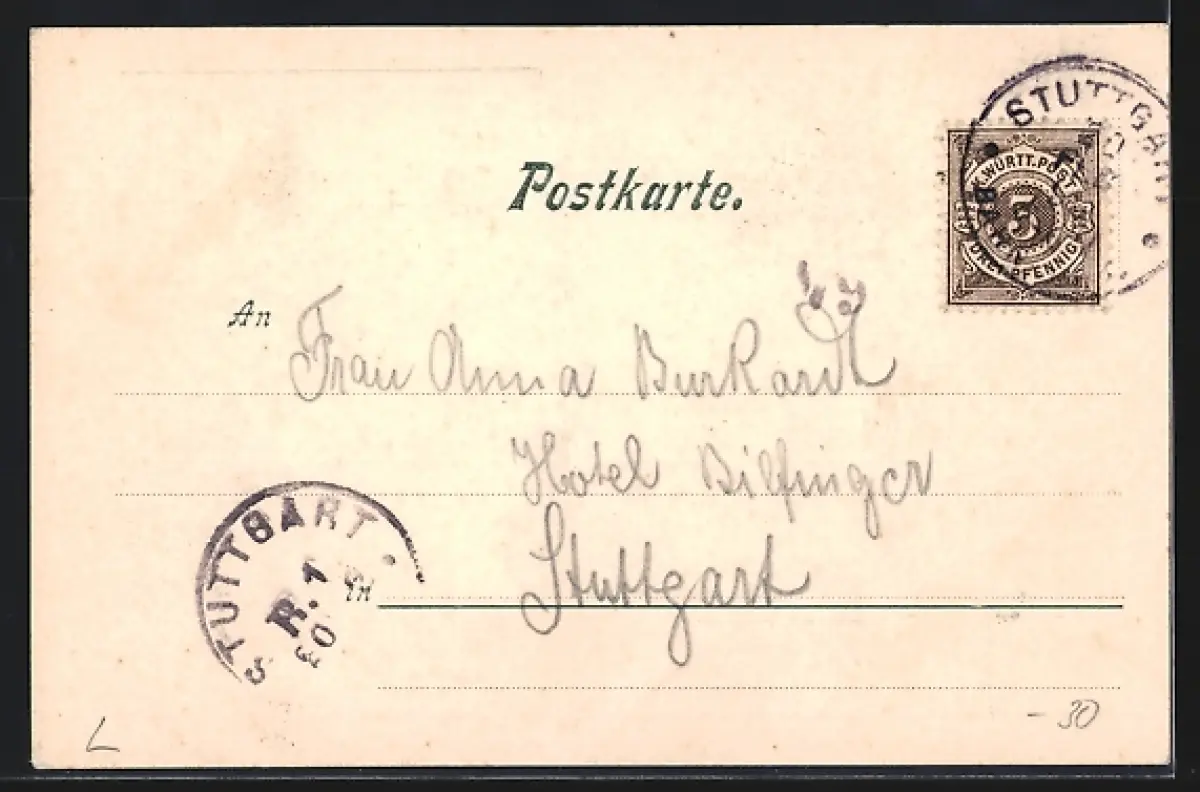 Postkarte.
STUTTGART
K. WÜRTT. POST
3
DREI PFENNIG
An Frau Anna Burkardt
Hotel Bilfinger
Stuttgart
STUTTGART
R. 1
03
in
L
- 30